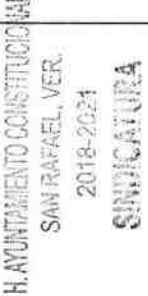 H. AYUNTAMIENTO CONSTITUCIONAL
SAN RAFAEL, VER.
2018-2021
SINDICATURA